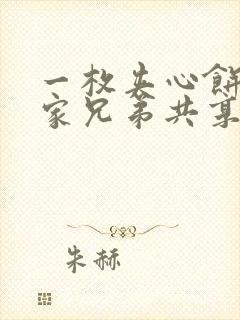 一枚夹心餅
家兄弟共享
朱赫